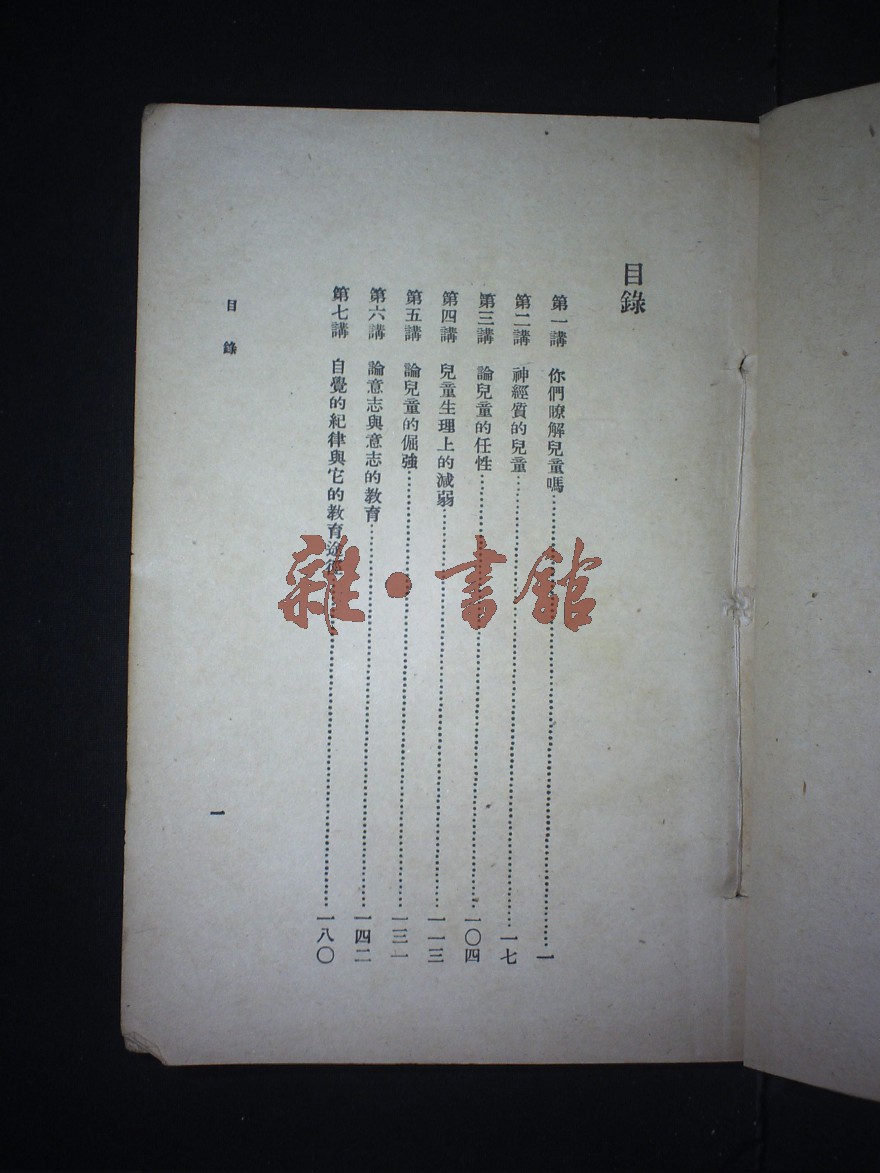 目錄
第一講　你們瞭解兒童嗎……一
第二講　神經質的兒童……一七
第三講　論兒童的任性……一〇四
第四講　兒童生理上的減弱……一一三
第五講　論兒童的倔強……一三一
第六講　論意志與意志的教育……一四二
第七講　自覺的紀律與它的教育途徑……一八〇
目錄
一
雜·書館